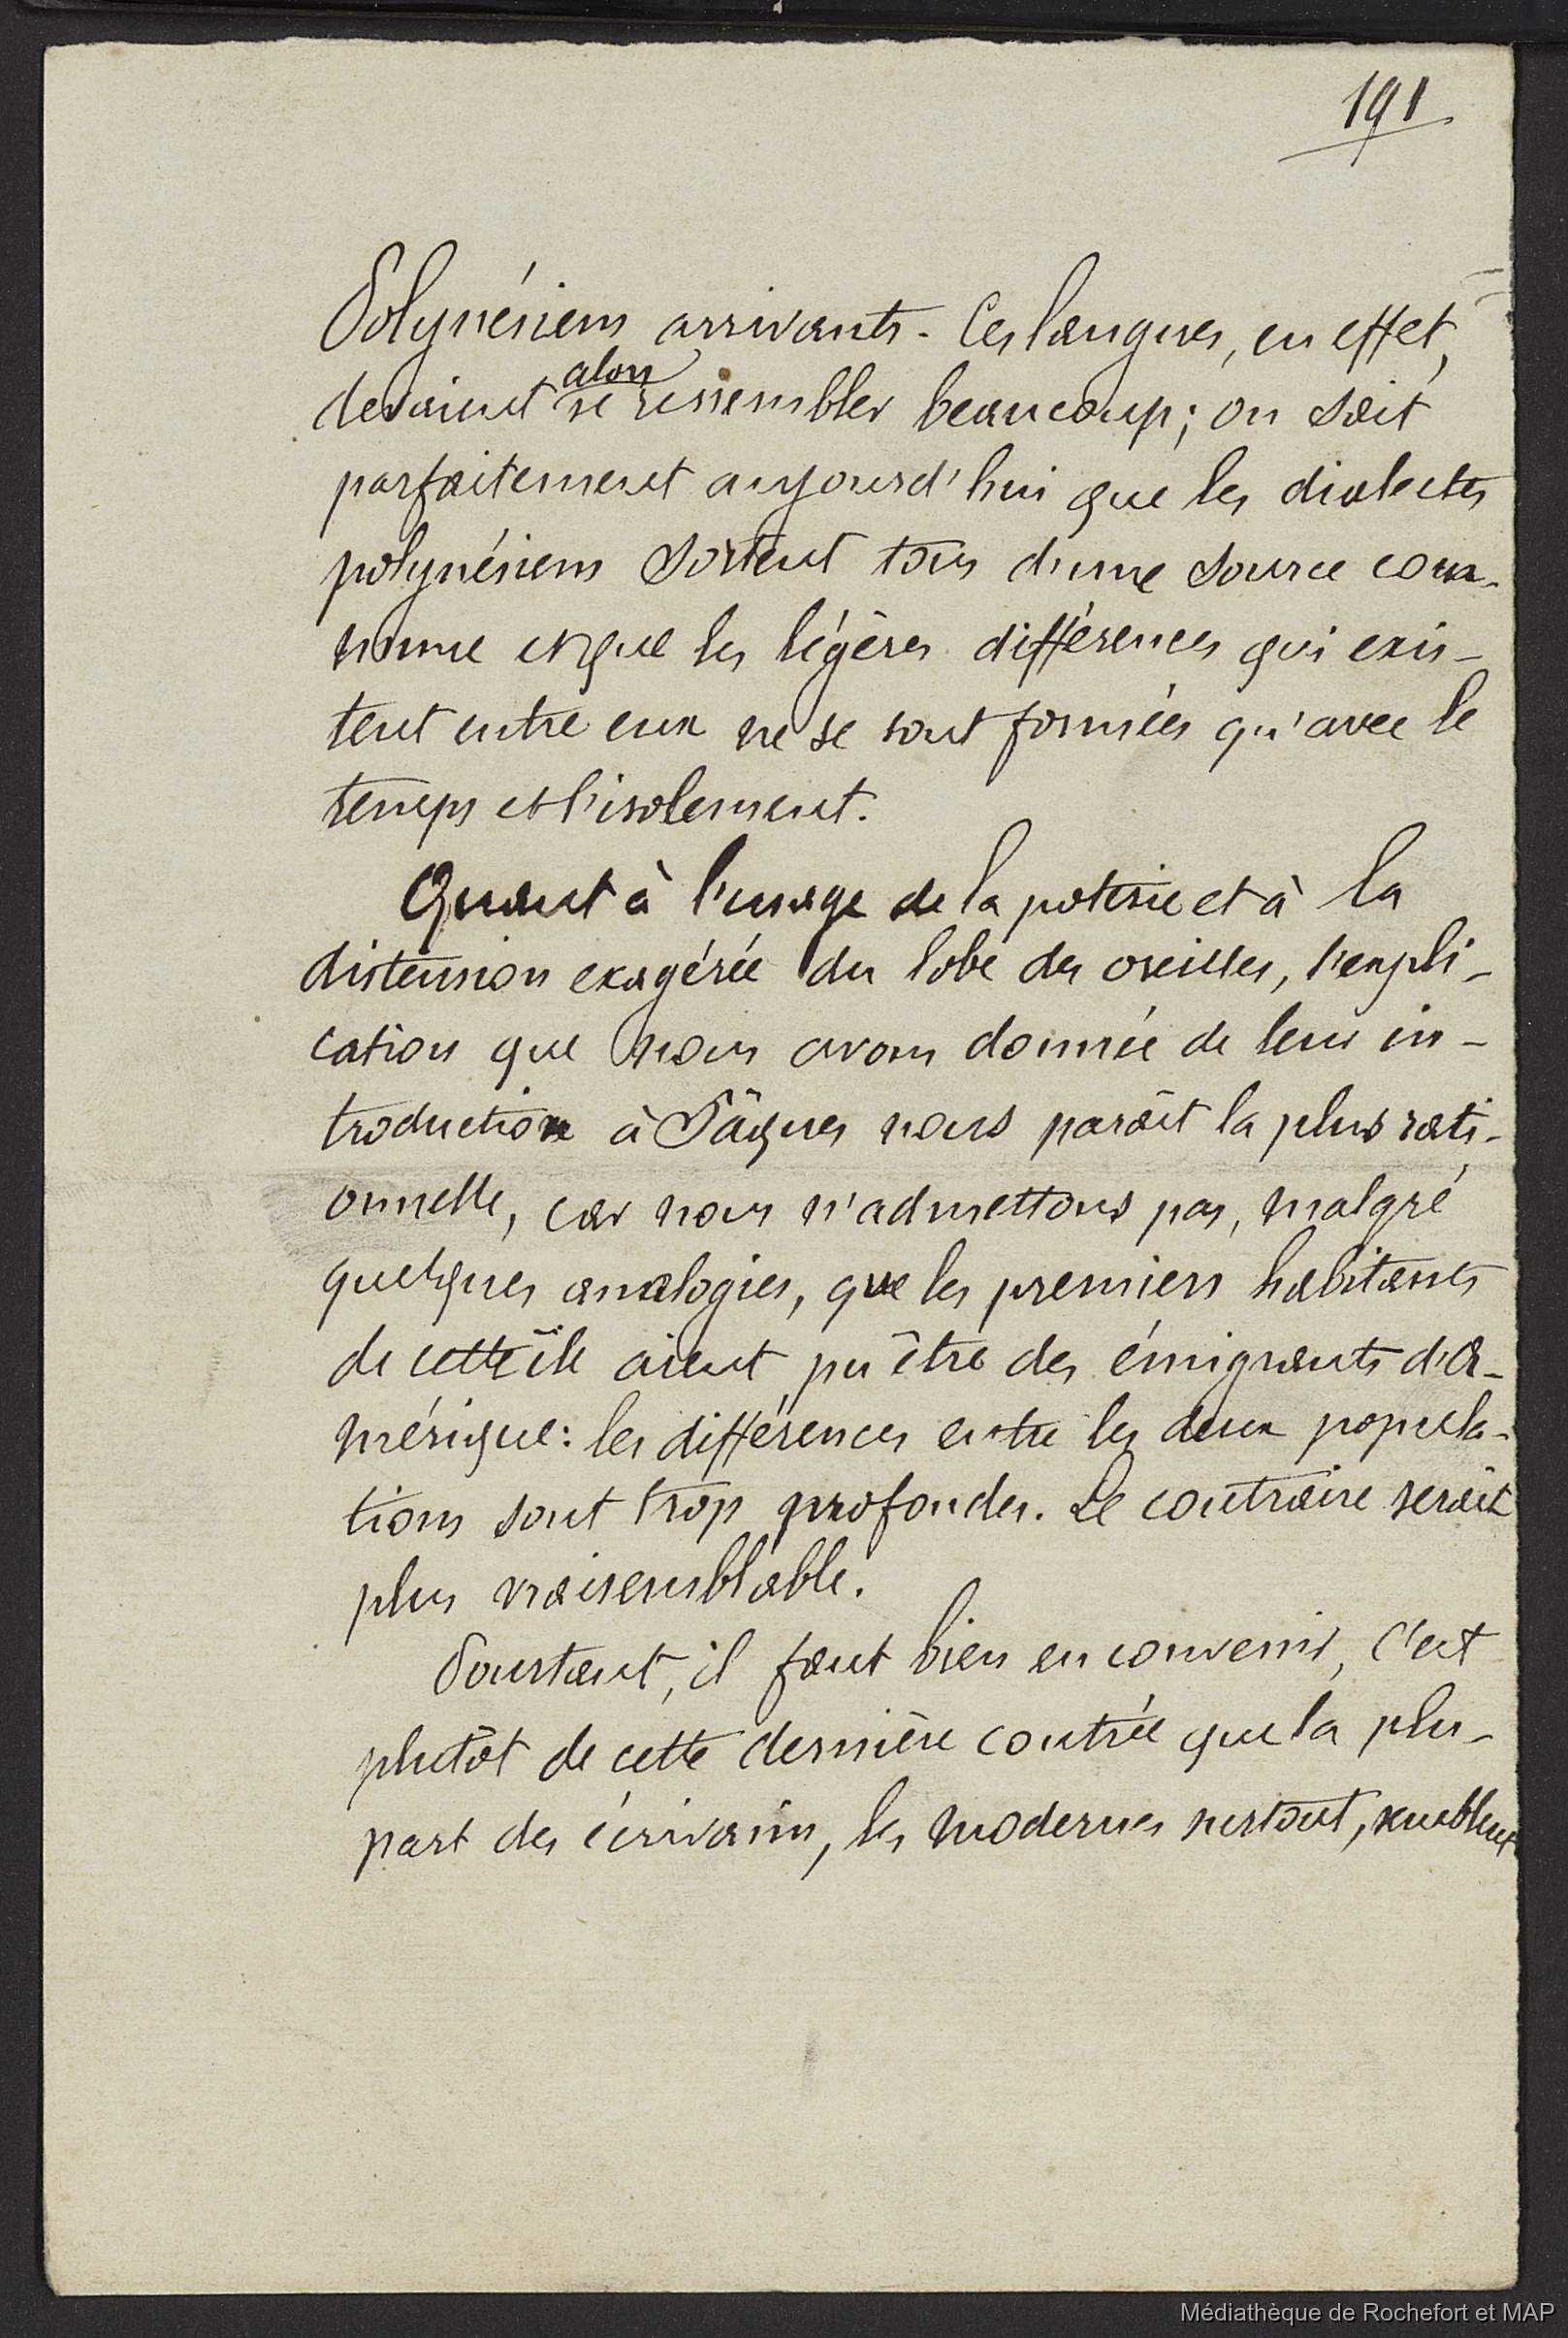 191
Polynésiens arrivants. Ces langues, en effet,
alors
devaient se ressembler beaucoup; on sait
parfaitement aujourd'hui que les dialectes
polynésiens sortent tous d'une source com-
mune et que les légères différences qui exis-
tent entre eux ne se sont formées qu'avec le
temps et l'isolement.
Quant à l'usage de la poterie et à la
distension exagérée du lobe des oreilles, l'expli-
cation que nous avons donnée de leur in-
troduction à Pâques nous paraît la plus rati-
onnelle, car nous n'admettons pas, malgré
quelques analogies, que les premiers habitants
de cette île aient pu être des émigrants d'A-
mérique: les différences entre les deux popula-
tions sont trop profondes. Le contraire serait
plus vraisemblable.
Pourtant, il faut bien en convenir, c'est
plutôt de cette dernière contrée que la plu-
part des écrivains, les modernes surtout, semblent
Médiathèque de Rochefort et MAP